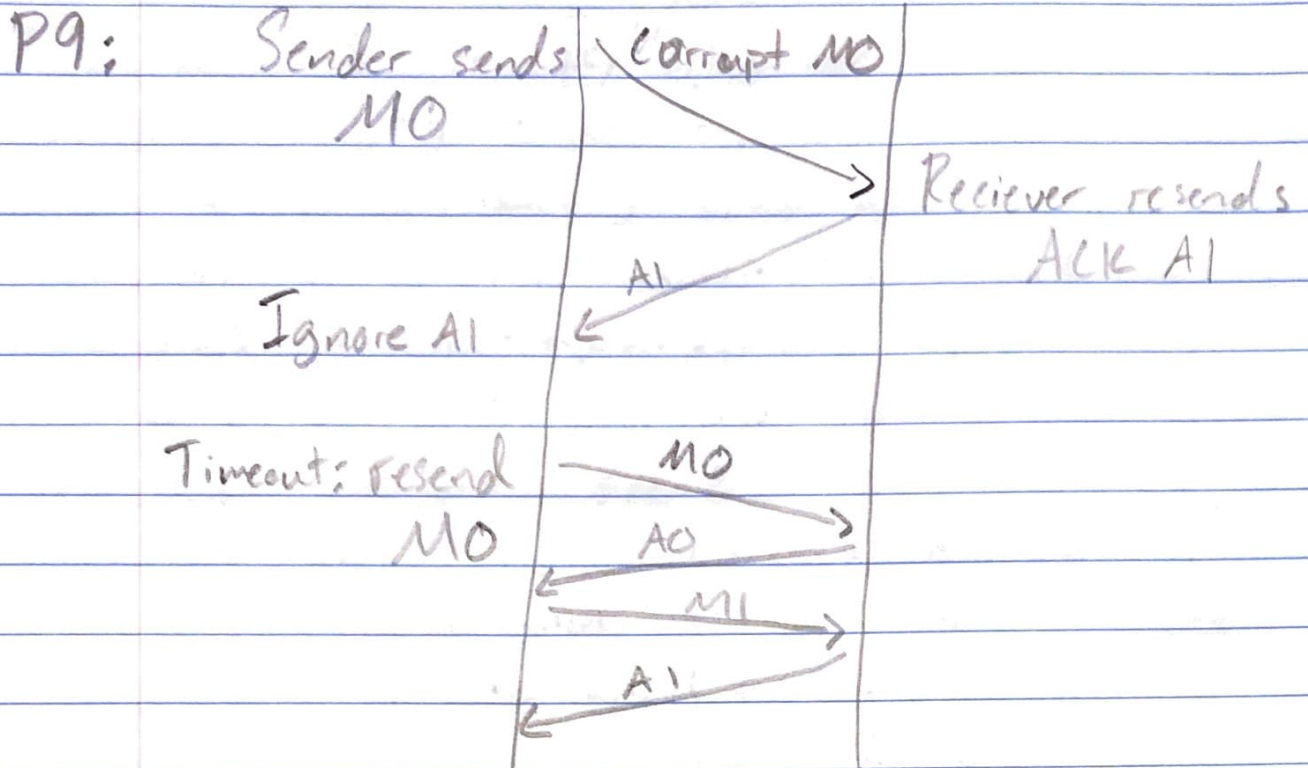 P9:
Sender sends
MO
Corrupt MO
Reciever resends
ACK A1
A1
Ignore A1
Timeout: resend
MO
MO
AO
M1
A1